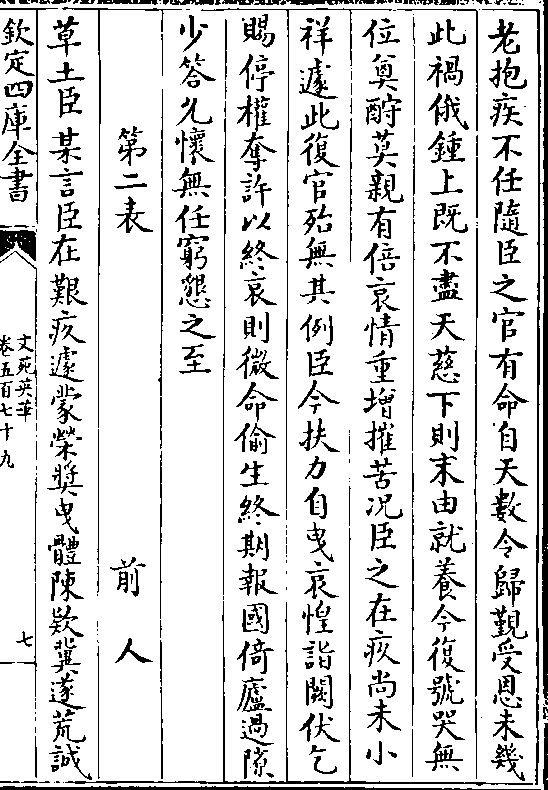 老抱疾不任隨臣之官有命自天數令歸覲受恩未幾
此禍俄鍾上既不盡天慈下則末由就養今復號哭無
位奠酹莫親有倍哀情重增摧苦况臣之在疚尚未小
祥遽此復官殆無其例臣今扶力自曳哀惶詣闕伏乞
賜停權奪許以終哀則微命偷生終期報國倚廬過隙
少答久懷無任窮懇之至
第二表 前人
草土臣某言臣在艱疚遽蒙榮奬曳體陳欵冀遂荒誠
欽定四庫全書
文苑英華
卷五百七十九
七